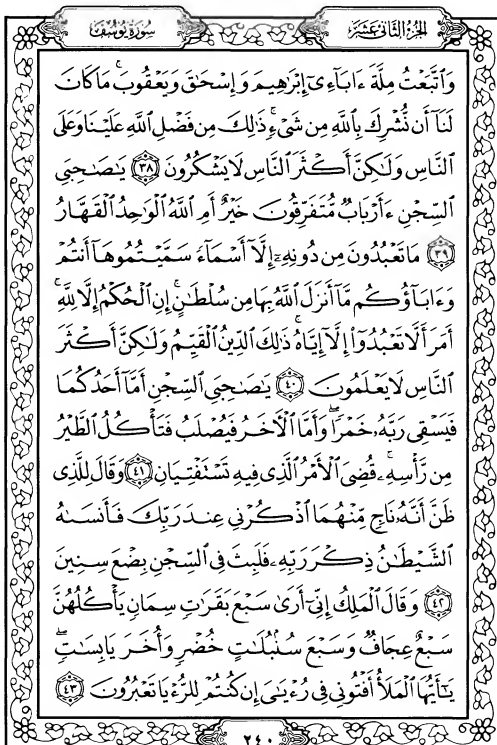 الجزء الثاني عشر
سورة يوسف
وَٱتَّبَعۡتُ مِلَّةَ ءَابَآءِيٓ إِبۡرَٰهِيمَ وَإِسۡحَٰقَ وَيَعۡقُوبَۚ مَا كَانَ
لَنَآ أَن نُّشۡرِكَ بِٱللَّهِ مِن شَيۡءٖۚ ذَٰلِكَ مِن فَضۡلِ ٱللَّهِ عَلَيۡنَا وَعَلَى
ٱلنَّاسِ وَلَٰكِنَّ أَكۡثَرَ ٱلنَّاسِ لَا يَشۡكُرُونَ ٣٨ يَٰصَٰحِبَيِ
ٱلسِّجۡنِ ءَأَرۡبَابٞ مُّتَفَرِّقُونَ خَيۡرٌ أَمِ ٱللَّهُ ٱلۡوَٰحِدُ ٱلۡقَهَّارُ
٣٩ مَا تَعۡبُدُونَ مِن دُونِهِۦٓ إِلَّآ أَسۡمَآءٗ سَمَّيۡتُمُوهَآ أَنتُمۡ
وَءَابَآؤُكُم مَّآ أَنزَلَ ٱللَّهُ بِهَا مِن سُلۡطَٰنٍۚ إِنِ ٱلۡحُكۡمُ إِلَّا لِلَّهِۚ
أَمَرَ أَلَّا تَعۡبُدُوٓاْ إِلَّآ إِيَّاهُۚ ذَٰلِكَ ٱلدِّينُ ٱلۡقَيِّمُ وَلَٰكِنَّ أَكۡثَرَ
ٱلنَّاسِ لَا يَعۡلَمُونَ ٤٠ يَٰصَٰحِبَيِ ٱلسِّجۡنِ أَمَّآ أَحَدُكُمَا
فَيَسۡقِي رَبَّهُۥ خَمۡرٗاۖ وَأَمَّا ٱلۡأٓخَرُ فَيُصۡلَبُ فَتَأۡكُلُ ٱلطَّيۡرُ
مِن رَّأۡسِهِۦۚ قُضِيَ ٱلۡأَمۡرُ ٱلَّذِي فِيهِ تَسۡتَفۡتِيَانِ ٤١ وَقَالَ لِلَّذِي
ظَنَّ أَنَّهُۥ نَاجٖ مِّنۡهُمَا ٱذۡكُرۡنِي عِندَ رَبِّكَ فَأَنسَىٰهُ
ٱلشَّيۡطَٰنُ ذِكۡرَ رَبِّهِۦ فَلَبِثَ فِي ٱلسِّجۡنِ بِضۡعَ سِنِينَ
٤٢ وَقَالَ ٱلۡمَلِكُ إِنِّيٓ أَرَىٰ سَبۡعَ بَقَرَٰتٖ سِمَانٖ يَأۡكُلُهُنَّ
سَبۡعٌ عِجَافٞ وَسَبۡعَ سُنۢبُلَٰتٍ خُضۡرٖ وَأُخَرَ يَابِسَٰتٖۖ
يَٰٓأَيُّهَا ٱلۡمَلَأُ أَفۡتُونِي فِي رُءۡيَٰيَ إِن كُنتُمۡ لِلرُّءۡيَا تَعۡبُرُونَ ٤٣
٢٤٠